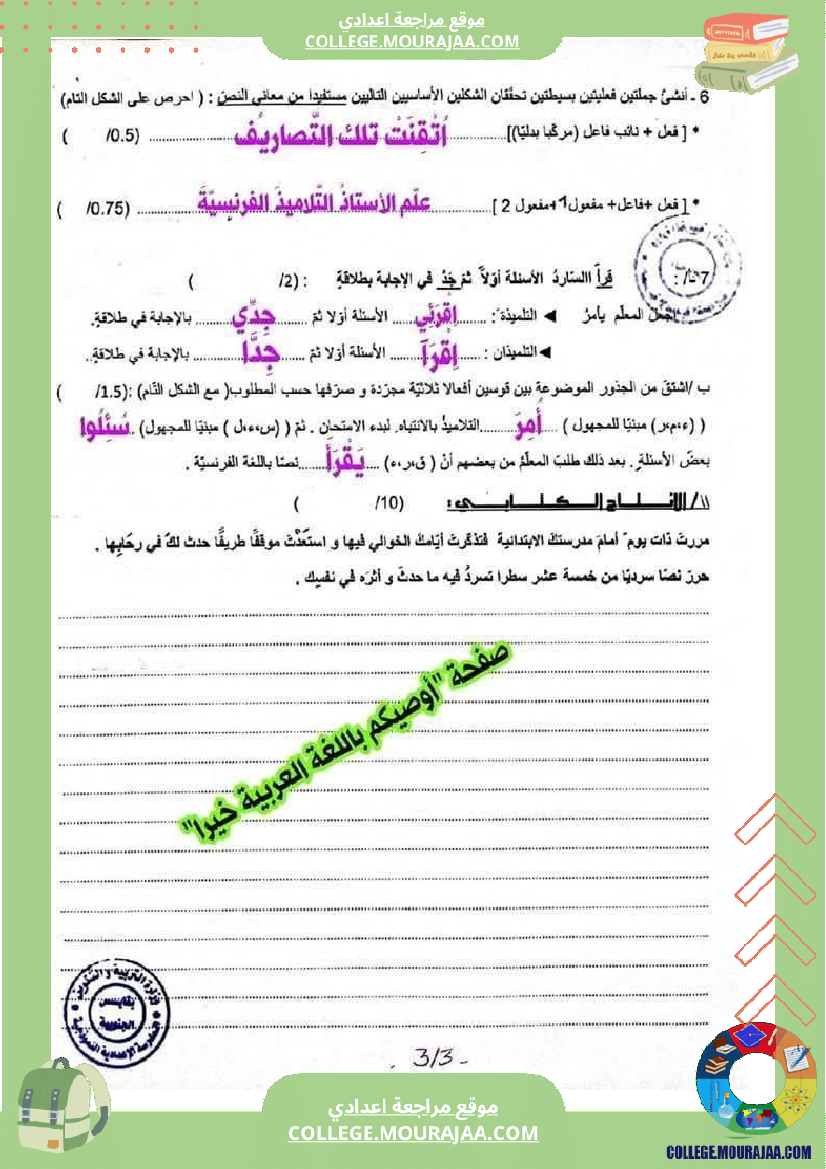 موقع مراجعة اعدادي
COLLEGE.MOURAJAA.COM
6 ـ أنشئ جملتين فعليتين بسيطتين تحققان الشكلين الأساسيين التاليين مستفيدا من معاني النص : ( احرص على الشكل التام)
* [ فعل + نائب فاعل (مركبا بدليا)] أُتْقِنَتْ تلك التّصاريفُ (0.5/ )
* [ فعل +فاعل+ مفعول1+مفعول 2 ] علّم الأستاذُ التّلاميذَ الفرنسيّةَ (0.75/ )
7-أ/ : قرأ السّاردُ الأسئلة أوّلاً ثمّ جَدَّ في الإجابة بطلاقةٍ : (2/ )
اجعل المعلّم يأمرُ ◄ التلميذة: إقْرَئِي الأسئلة أوّلا ثمّ جِدِّي بالإجابة في طلاقةٍ.
◄التلميذان : إقْرَآ الأسئلة أوّلا ثمّ جِدَّا بالإجابة في طلاقةٍ.
ب /اشتقّ من الجذور الموضوعة بين قوسين أفعالا ثلاثيّة مجرّدة و صرّفها حسب المطلوب( مع الشكل التّام) :(1.5/ )
( (ء،م،ر) مبنيّا للمجهول ) أُمِرَ التلاميذُ بالانتباه لبدء الامتحان . ثمّ ( (س،ء،ل ) مبنيّا للمجهول) سُئِلُوا
بعضَ الأسئلةِ. بعد ذلك طلبَ المعلّمُ من بعضهم أنْ ( ق،ر،ء) يَقْرَأَ نصّا باللغة الفرنسيّة .
II/ الإنتاج الكتابي : (10/ )
مررتَ ذات يوم أمامَ مدرستكَ الابتدائية فتذكّرتَ أيّامكَ الخوالي فيها و استعَدْتَ موقفًا طريفًا حدث لكَ في رحَابِها .
حررْ نصّا سرديّا من خمسة عشر سطرا تسردُ فيه ما حدثَ و أثرَه في نفسِك .
صفحة "أوصيكم باللغة العربية خيرا"
وزارة التربية
بقابس
3/3
موقع مراجعة اعدادي
COLLEGE.MOURAJAA.COM
COLLEGE.MOURAJAA.COM